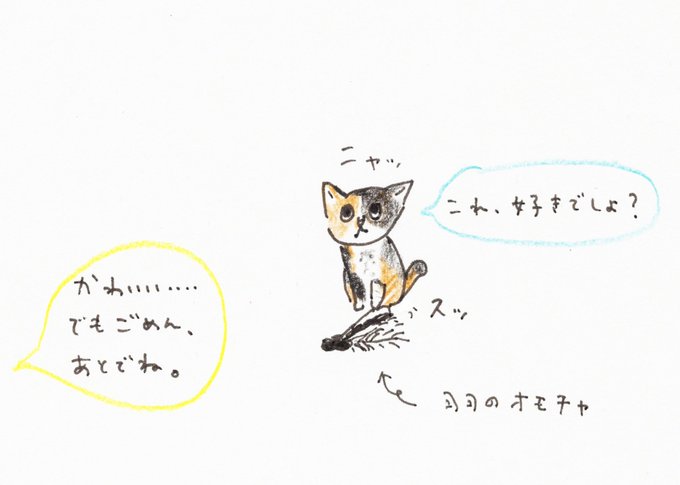 ニャッ
これ、好きでしょ？
かわいい‥‥
でもごめん、
あとでね。
スッ
羽のオモチャ